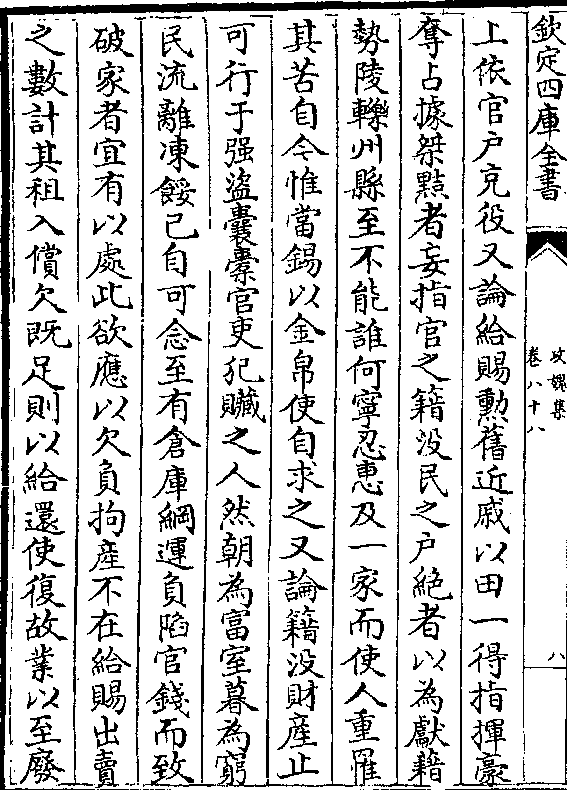 欽定四庫全書
攻媿集
卷八十八
八
上依官户充役又論給賜勲舊近戚以田一得指揮豪
奪占據桀黠者妄指官之籍没民之户絶者以為獻藉
勢陵轢州縣至不能誰何寧忍惠及一家而使人重罹
其苦自今惟當錫以金帛使自求之又論籍没財産止
可行于强盜囊橐官吏犯贓之人然朝為富室暮為窮
民流離凍餒已自可念至有倉庫綱運負陷官錢而致
破家者宜有以處此欲應以欠負拘産不在給賜出賣
之數計其租入償欠既足則以給還使復故業以至廢